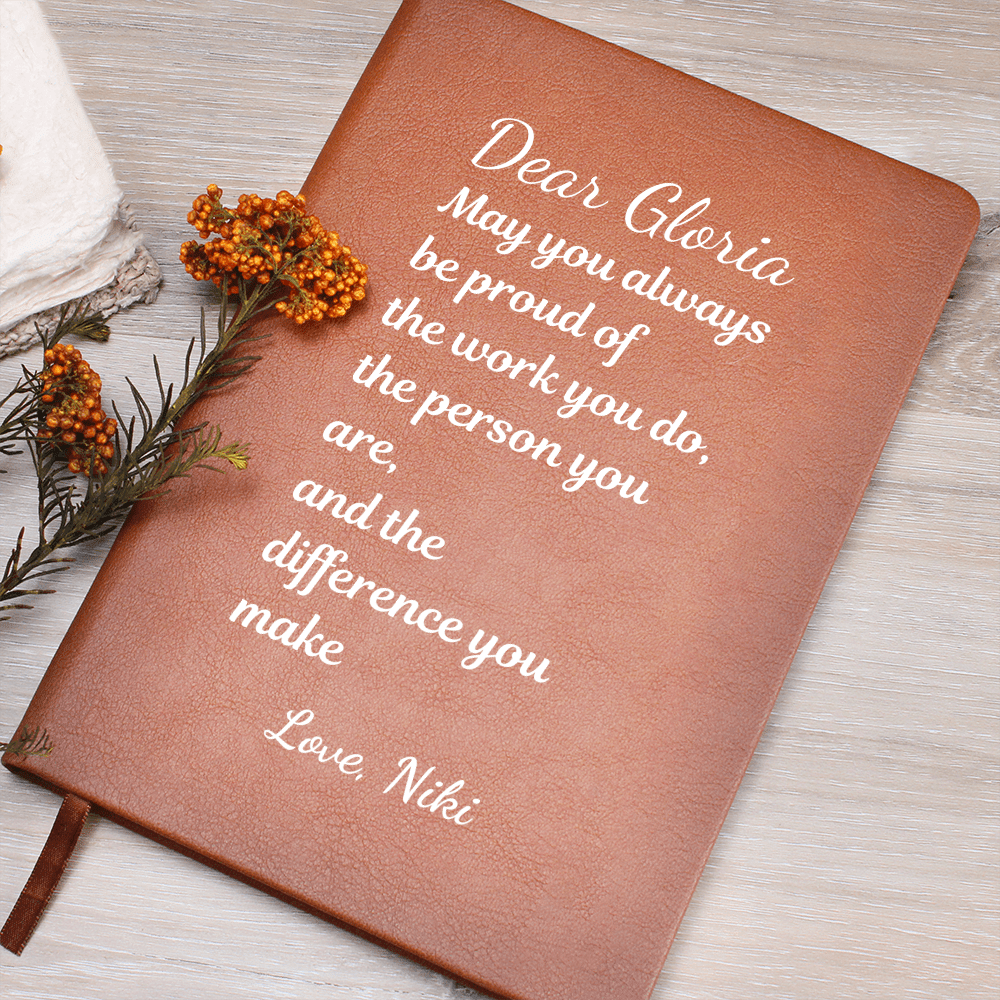 Dear Gloria
May you always
be proud of
the work you do,
the person you
are,
and the
difference you
make
Love, Niki